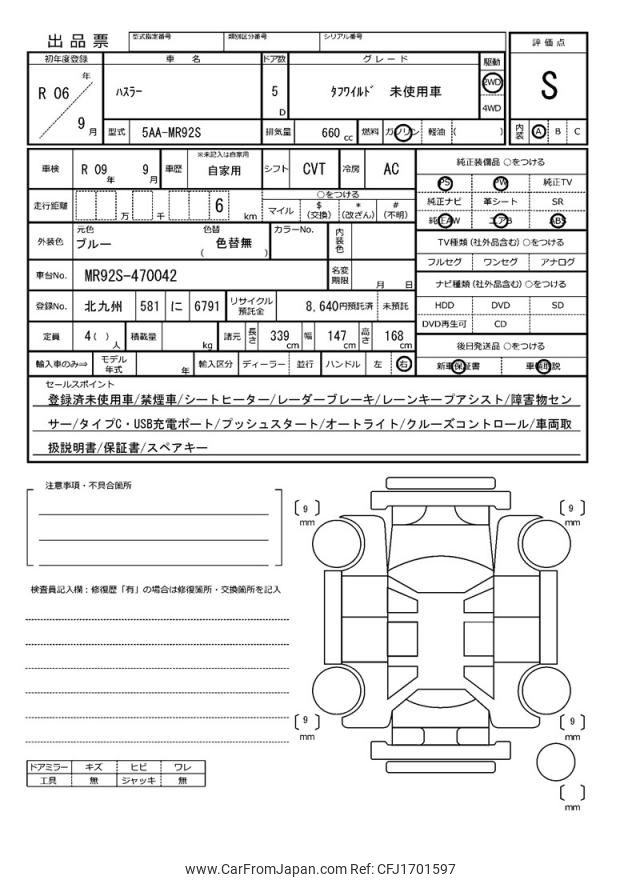 出品票
型式指定番号 類別区分番号 シリアル番号
評価点
初年度登録 車名 ドア数 グレード 駆動
R 06 年 9 月
ﾊｽﾗｰ
5 D
ﾀﾌﾜｲﾙﾄﾞ 未使用車
2WD
4WD
S
型式 5AA-MR92S 排気量 660 cc 燃料 ガソリン 軽油 ( )
内装 A B C
車検 R 09 年 9 月 車歴 ※未記入は自家用 自家用 シフト CVT 冷房 AC
純正装備品 ○をつける
PS PW 純正TV
純正ナビ 革シート SR
純正AW エアB ABS
走行距離 万 千 6 km
○をつける
マイル $(交換) *(改ざん) #(不明)
外装色 元色 ブルー 色替 色替無 ( ) カラーNo. 内装色
TV種類 (社外品含む) ○をつける
フルセグ ワンセグ アナログ
車台No. MR92S-470042 名変期限 月 日
ナビ種類 (社外品含む) ○をつける
HDD DVD SD
DVD再生可 CD
登録No. 北九州 581 に 6791 リサイクル預託金 8,640円預託済 未預託
定員 4 ( ) 人 積載量 kg 諸元 長さ 339 cm 幅 147 cm 高さ 168 cm
後日発送品 ○をつける
新車保証書 車輌取説
輸入車のみ⇒ モデル年式 年 輸入区分 ディーラー 並行 ハンドル 左 右
セールスポイント
登録済未使用車/禁煙車/シートヒーター/レーダーブレーキ/レーンキープアシスト/障害物セン
サー/タイプC・USB充電ポート/プッシュスタート/オートライト/クルーズコントロール/車両取
扱説明書/保証書/スペアキー
注意事項・不具合箇所
検査員記入欄：修復歴「有」の場合は修復箇所・交換箇所を記入
〔 9 〕 mm
〔 9 〕 mm
〔 9 〕 mm
〔 9 〕 mm
〔 〕 mm
ドアミラー キズ ヒビ ワレ
工具 無 ジャッキ 無
www.CarFromJapan.com Ref: CFJ1701597